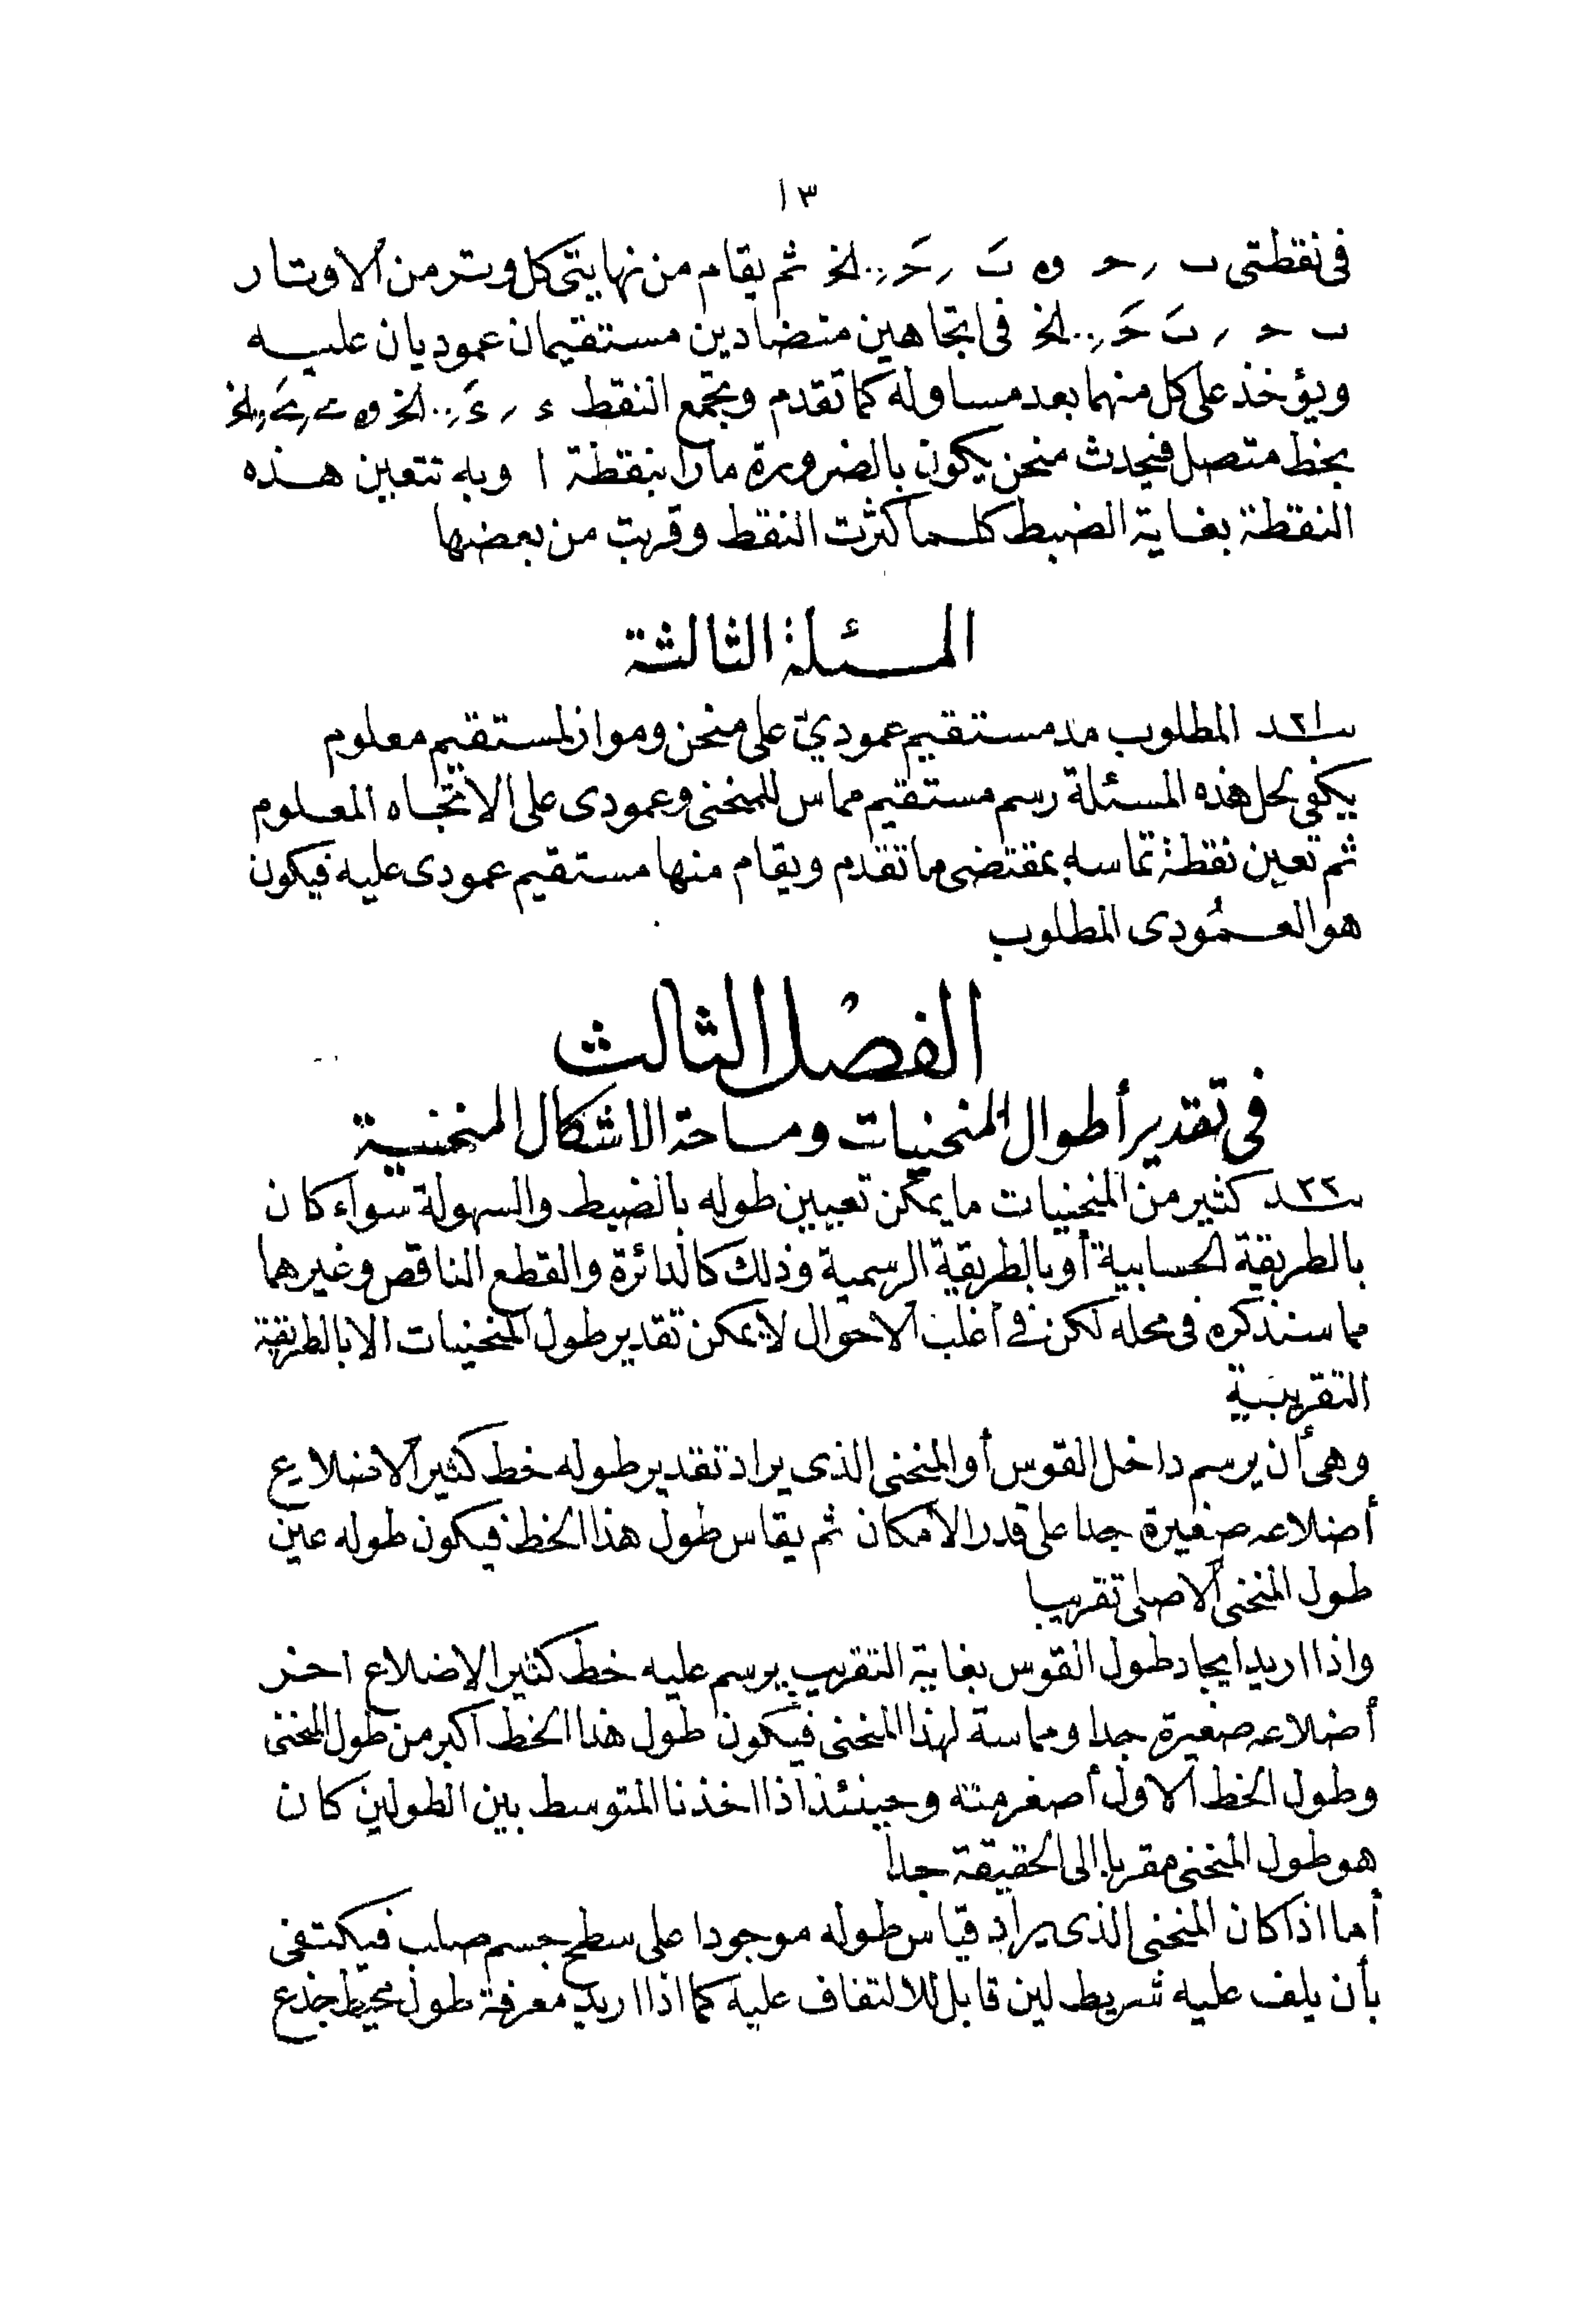 ١٣
فى نقطتى ب , ح و ه ب َ , ح َ , .. الخ ثم يقام من نهايتى كل وتر من الاوتار
ب ح , ب َ ح َ , .. الخ فى اتجاهين متضادين مستقيمان عموديان عليه
ويؤخذ على كل منهما بعد مساو له كما تقدم وتجمع النقط ء , ء َ , .. الخ و
بخط متصل فيحدث منحن يكون بالضرورة مارا بنقطة ا وبه تتعين هذه
النقطة بغاية الضبط كلما كثرت النقط وقربت من بعضها
المسئلة الثالثة
٢١ المطلوب مد مستقيم عمودي على منحن ومواز لمستقيم معلوم
يكفى لحل هذه المسئلة رسم مستقيم مماس للمنحنى وعمودى على الاتجاه المعلوم
ثم تعين نقطة تماسه بمقتضى ما تقدم ويقام منها مستقيم عمودى عليه فيكون
هو العمودى المطلوب
الفصل الثالث
فى تقدير أطوال المنحنيات ومساحة الاشكال المنحنية
٢٢ كثير من المنحنيات ما يمكن تعيين طوله بالضبط والسهولة سواء كان
بالطريقة الحسابية أو بالطريقة الرسمية وذلك كالدائرة والقطع الناقص وغيرهما
مما سنذكره فى محله لكن فى أغلب الاحوال لا يمكن تقدير طول المنحنيات الا بالطريقة
التقريبية
وهى أن يرسم داخل القوس أو المنحنى الذى يراد تقدير طوله خط كثير الاضلاع
أضلاعه صغيرة جدا على قدر الامكان ثم يقاس طول هذا الخط فيكون طوله عين
طول المنحنى الاصلى تقريبا
واذا اريد ايجاد طول القوس بغاية التقريب يرسم عليه خط كثير الاضلاع اخر
أضلاعه صغيرة جدا ومماسة لهذا المنحنى فيكون طول هذا الخط اكبر من طول المنحنى
وطول الخط الاول أصغر منه وحينئذ اذا اخذنا المتوسط بين الطولين كان
هو طول المنحنى مقربا الى الحقيقة جدا
أما اذا كان المنحنى الذى يراد قياس طوله موجودا على سطح جسم صلب فيكتفى
بأن يلف عليه شريط لين قابل للالتفاف عليه كما اذا اريد معرفة طول محيط جذع